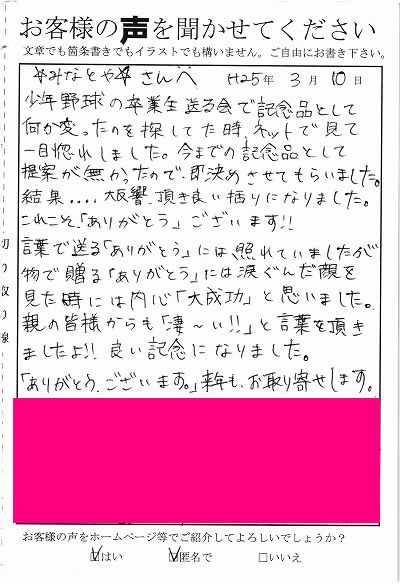 お客様の声を聞かせてください
文章でも箇条書きでもイラストでも構いません。ご自由にお書き下さい。
みなとや さんへ H25年 3月 10日
少年野球の卒業生送る会で記念品として
何か変ったのを探してた時、ネットで見て
一目惚れしました。今までの記念品として
提案が無かったので、即決めさせてもらいました。
結果....大反響頂き良い括りになりました。
これこそ、「ありがとう」ございます!!
言葉で送る「ありがとう」には照れていましたが
物で贈る「ありがとう」には涙ぐんだ顔を
見た時には内心「大成功」と思いました。
親の皆様からも「凄〜い!!」と言葉を頂き
ましたよ!! 良い記念になりました。
「ありがとう、ございます。」来年も、お取り寄せします。
切り取り線
お客様の声をホームページ等でご紹介してよろしいでしょうか?
☑はい ☑匿名で □いいえ